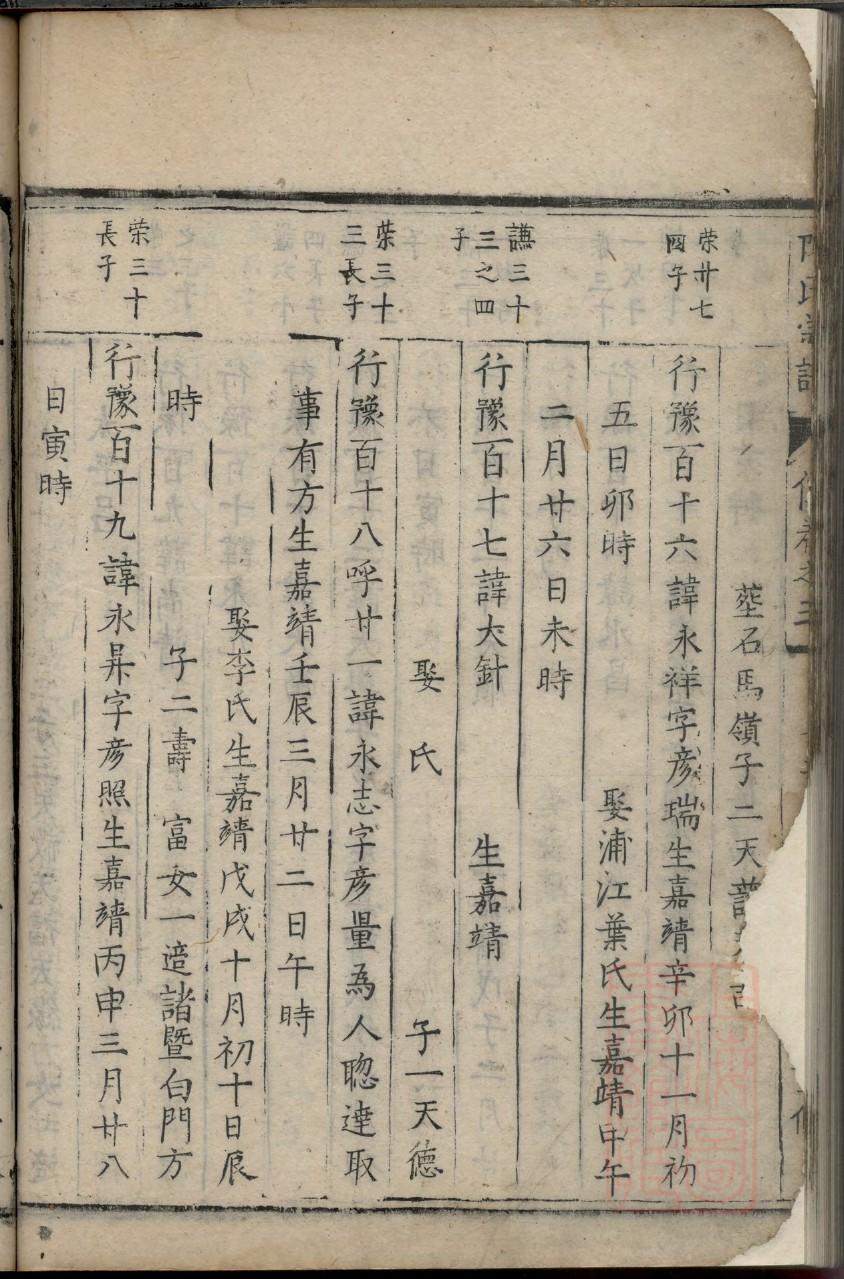 塟石馬嶺子二天
榮廿七
四子
行豫百十六諱永祥字彥瑞生嘉靖辛卯十一月初
五日卯時　娶浦江葉氏生嘉靖甲午
二月廿六日未時
謙三十
三之四
子
行豫百十七諱大針　生嘉靖
娶　氏　子一天德
榮三十
三長子
行豫百十八呼廿一諱永志字彥量為人聰達取
事有方生嘉靖壬辰三月廿二日午時
娶李氏生嘉靖戊戌十月初十日辰
時　子二壽　富女一適諸暨白門方
榮三十
長子
行豫百十九諱永昇字彥照生嘉靖丙申三月廿八
日寅時